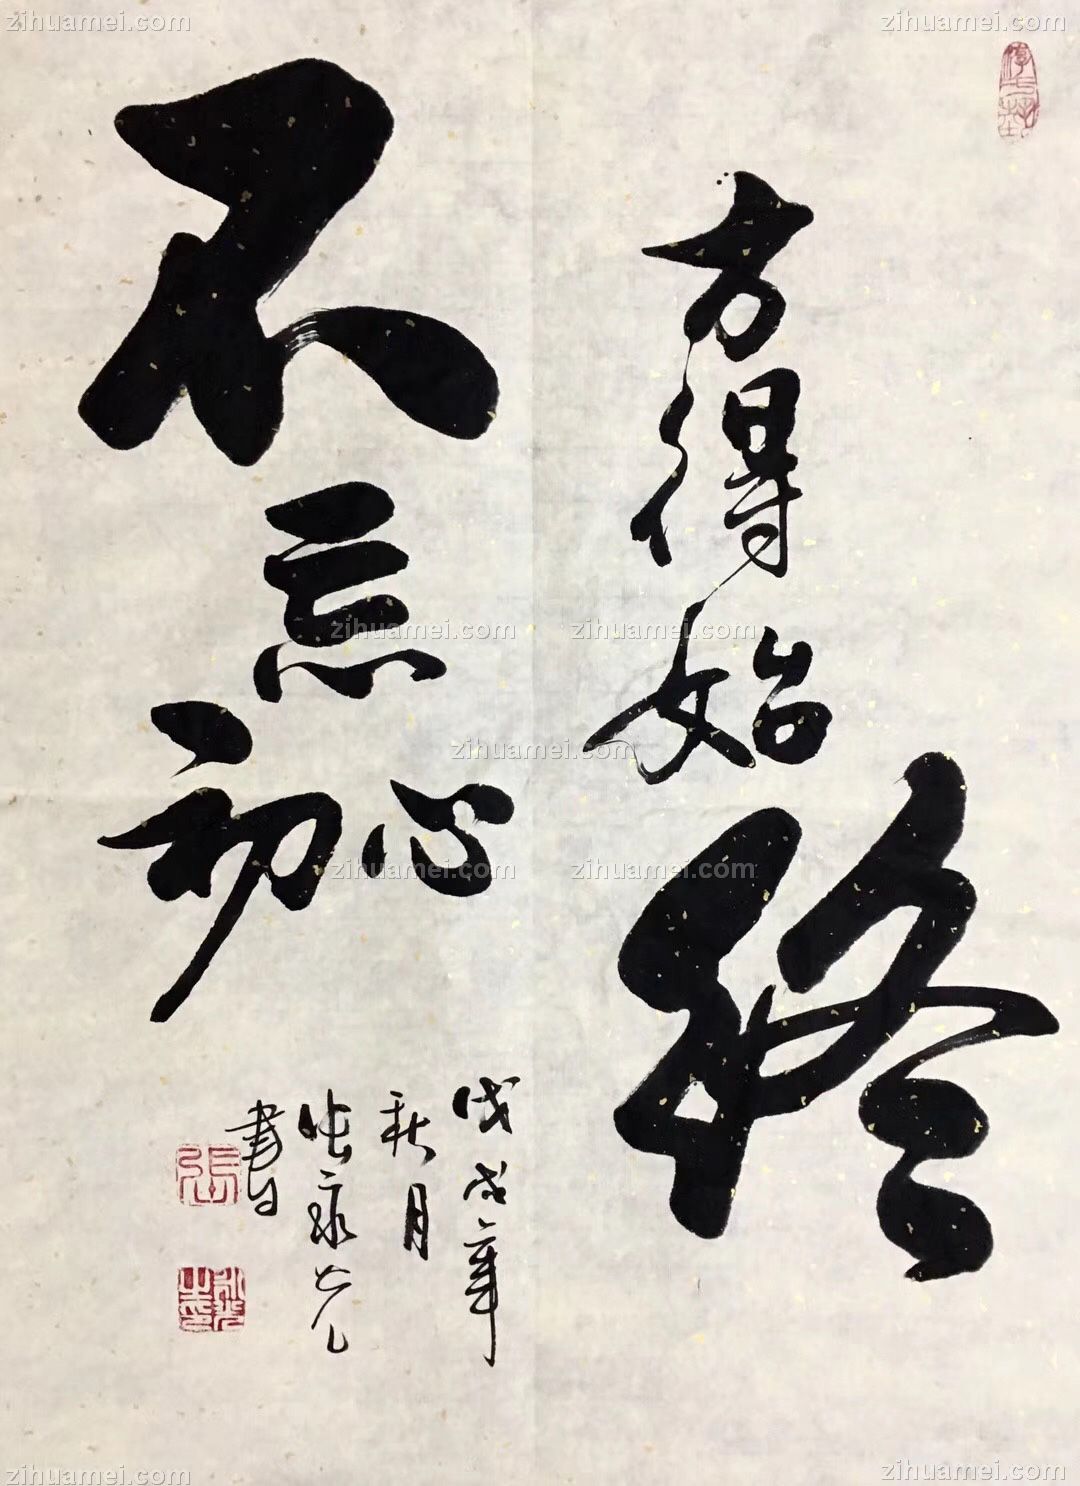 zihuamei.com
zihuamei.com
不忘初心
方得始终
戊戌年
秋月
张永光
書
張
永光之印
zihuamei.com
zihuamei.com
zihuamei.com
zihuamei.com
zihuamei.com
zihuamei.com
zihuamei.com